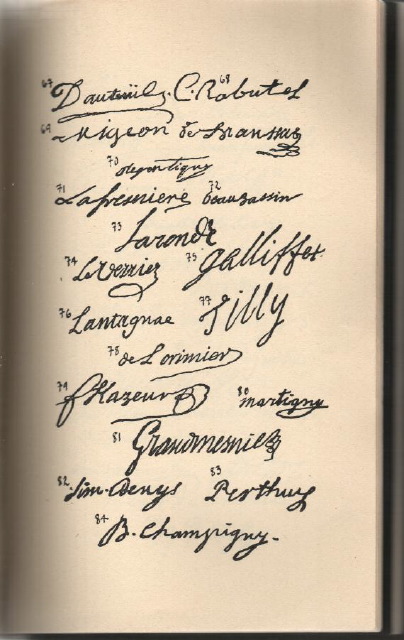 67 Dauteüil. 68 C. Robutel
69 Migeon de Bransac
70 derpentigny
71 Lafresniere 72 beaubassin
73 Laronde
74 LeVerrier 75 galliffet
76 Lantagnac 77 Tilly
78 de Lorimier
79 f Hazeur 80 martigny
81 Grandmesnil
82 Sim. Denys 83 Perthuy
84 B. Champigny.